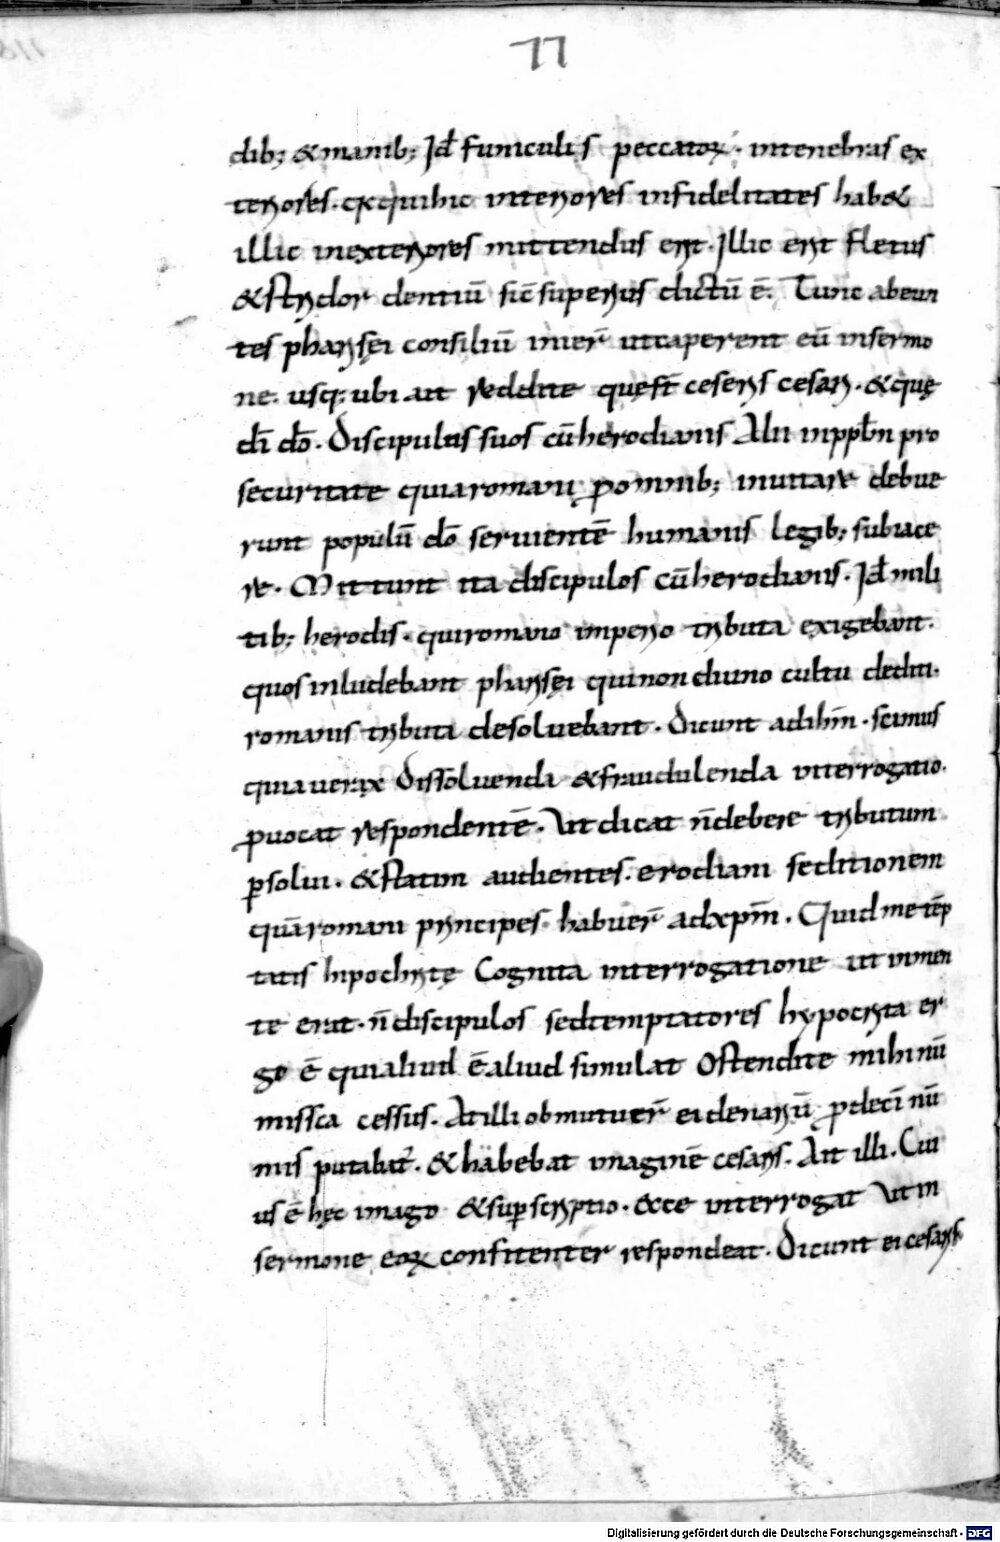 77
dib; & manib; Id̄ funiculis peccatoꝝ · intenebras ex
teriores · q̄a quihic interiores infidelitates hab&
illic inexteriores mittendus erit · Illic erit fletus
& stridor dentiū sic̄ superius dictū ē. Tunc abeun
tes pharisęi consiliū inier̄ utcaperent eū insermo
ne. usq; ubi ait reddite quęst̄ ceseris cesari · & quę
dī dō · Discipulus suos cū herodianis Alii inppl̄m pro
securitate quiaromani p̱ omnib; inuitare debue
runt populū dō seruientē humanis legib; subiace
re · Mittunt ita discipulos cū herodianis · Id̄ mili
tib; herodis · quiromano imperio tributa exigebant.
quos inludebant pharisęi quinon diuino cultu dediti.
romanis tributa desoluebant · Dicunt adihm̄ · scimus
quia uerax Dissoluenda & fraudulenda interrogatio.
ꝓuocat respondentē. Ut dicat n̄debere tributum
ꝑsolui · & statim audientes. erodiani seditionem
quā romani principes habuer̄ adxpm̄ · Quid me tēp
tatis hipochritę Cognita interrogatione ut inmen
te erat · n̄discipulos sedtemptatores hypocrita er
go ē quialiud ē aliud simulat Ostendite mihi nū
missca cessus. At illi obmutuer̄ ei denariū ꝓdecī nū
mis putabat̄ · & habebat imaginē cesaris. Ait illi. Cui
us ē hęc imago & suꝑscriptio · & ce interrogat Ut in
sermone eoꝝ confitenter respondeat · Dicunt ei cesaris
Digitalisierung gefördert durch die Deutsche Forschungsgemeinschaft - DFG